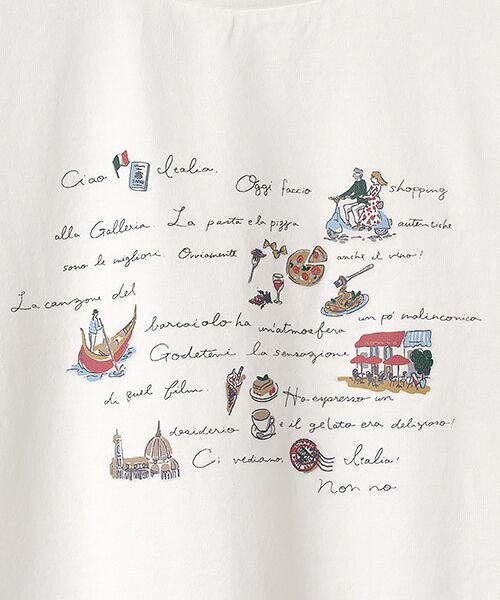 Ciao Italia.
Oggi faccio shopping
alla Galleria. La pasta e la pizza autentiche
sono le migliori. Ovviamente anche il vino!
La canzone del
barcaiolo ha un'atmosfera un po' malinconica
Godetevi la sensazione
di quel film. Ho espresso un
desiderio e il gelato era delizioso!
Ci vediamo, Italia!
Non no